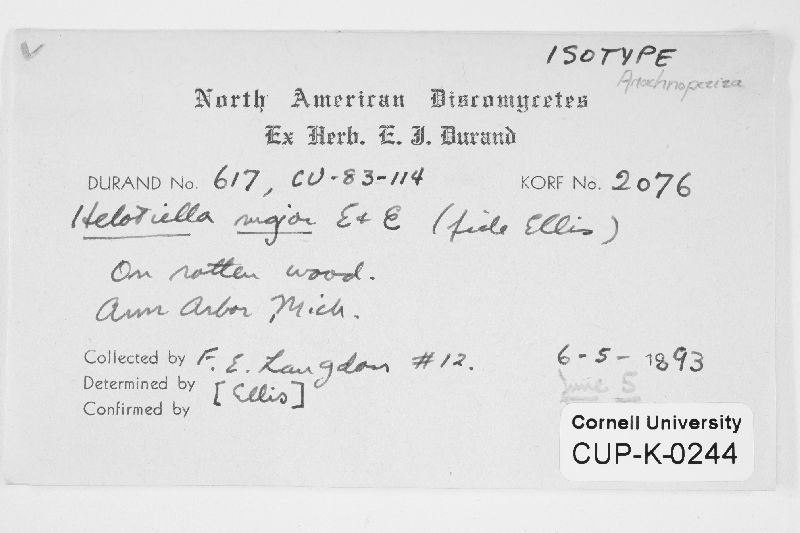 ISOTYPE
Arachnopeziza
North American Discomycetes
Ex Herb. E. J. Durand
DURAND No. 617, CU-83-114 KORF No. 2076
Helotiella major E & E (fide Ellis)
On rotten wood.
Ann Arbor Mich.
Collected by F. E. Langdon #12. 6-5-1893
Determined by [Ellis] June 5
Confirmed by
Cornell University
CUP-K-0244